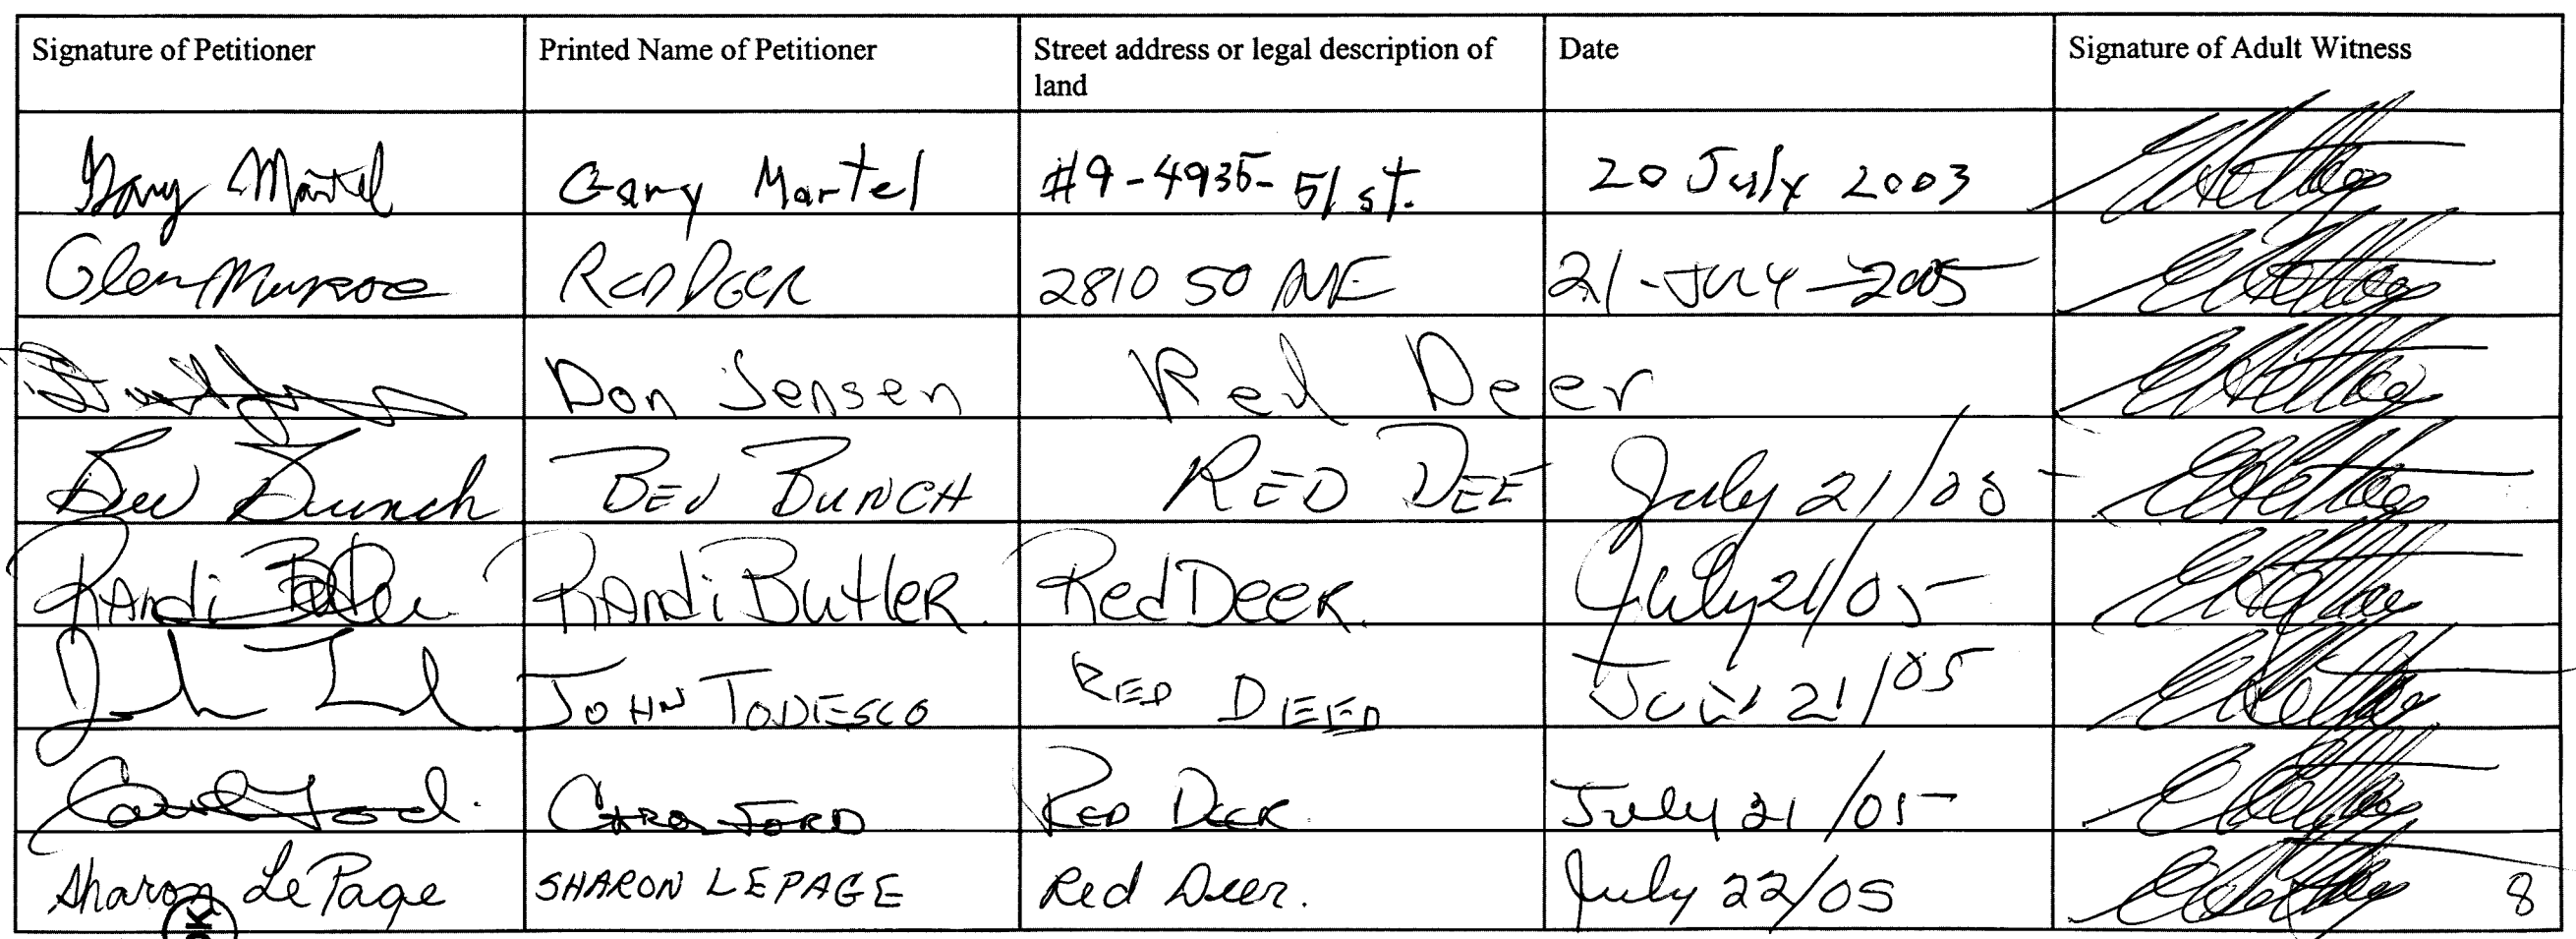 Signature of Petitioner Printed Name of Petitioner Street address or legal description of land Date Signature of Adult Witness
Gary Martel Gary Martel #9-4935-51 st. 20 July 2003
Glen Munroe RED DEER 2810 50 AVE 21-JULY-2005
Don Jensen Red Deer
Bev Bunch BEV BUNCH RED DEE July 21/05
RAndi Butler RAndi ButleR. Red DeeR. July 21/05
John JOHN TODESCO RED DEER July 21/05
Carol Ford. CAROL FORD RED DEER. July 21/05
Sharon LePage SHARON LEPAGE Red Deer. July 22/05 8
OK